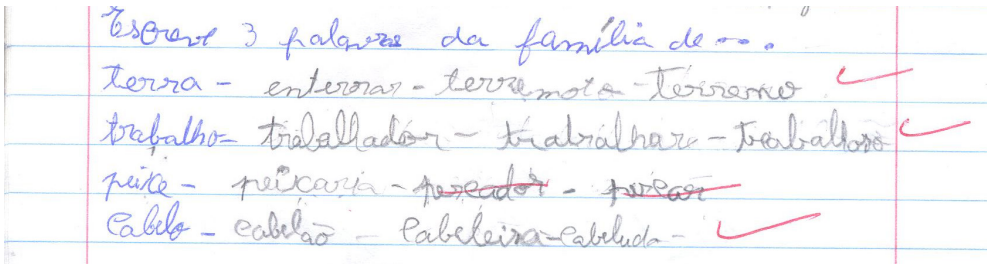 Escreve 3 palavras da família de....
terra - enterrar - terremoto - Terreno
trabalho - trabalhador - trabalhar - trabalhoso
peixe - peixaria - pescador - pescar
Cabelo - cabelão - Cabeleira - cabeludo -